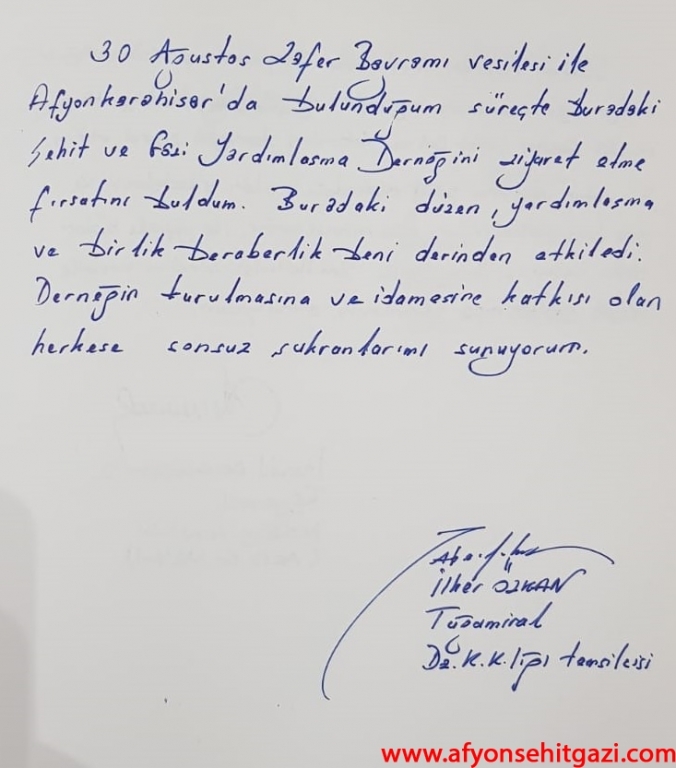 30 Ağustos Zafer Bayramı vesilesi ile
Afyonkarahisar'da bulunduğum süreçte buradaki
Şehit ve Gazi Yardımlaşma Derneğini ziyaret etme
fırsatını buldum. Buradaki düzen, yardımlaşma
ve birlik beraberlik beni derinden etkiledi.
Derneğin kurulmasına ve idamesine katkısı olan
herkese sonsuz şükranlarımı sunuyorum.
İlker ÖZKAN
Tüğamiral
Dz.K.K.lığı temsilcisi
www.afyonsehitgazi.com